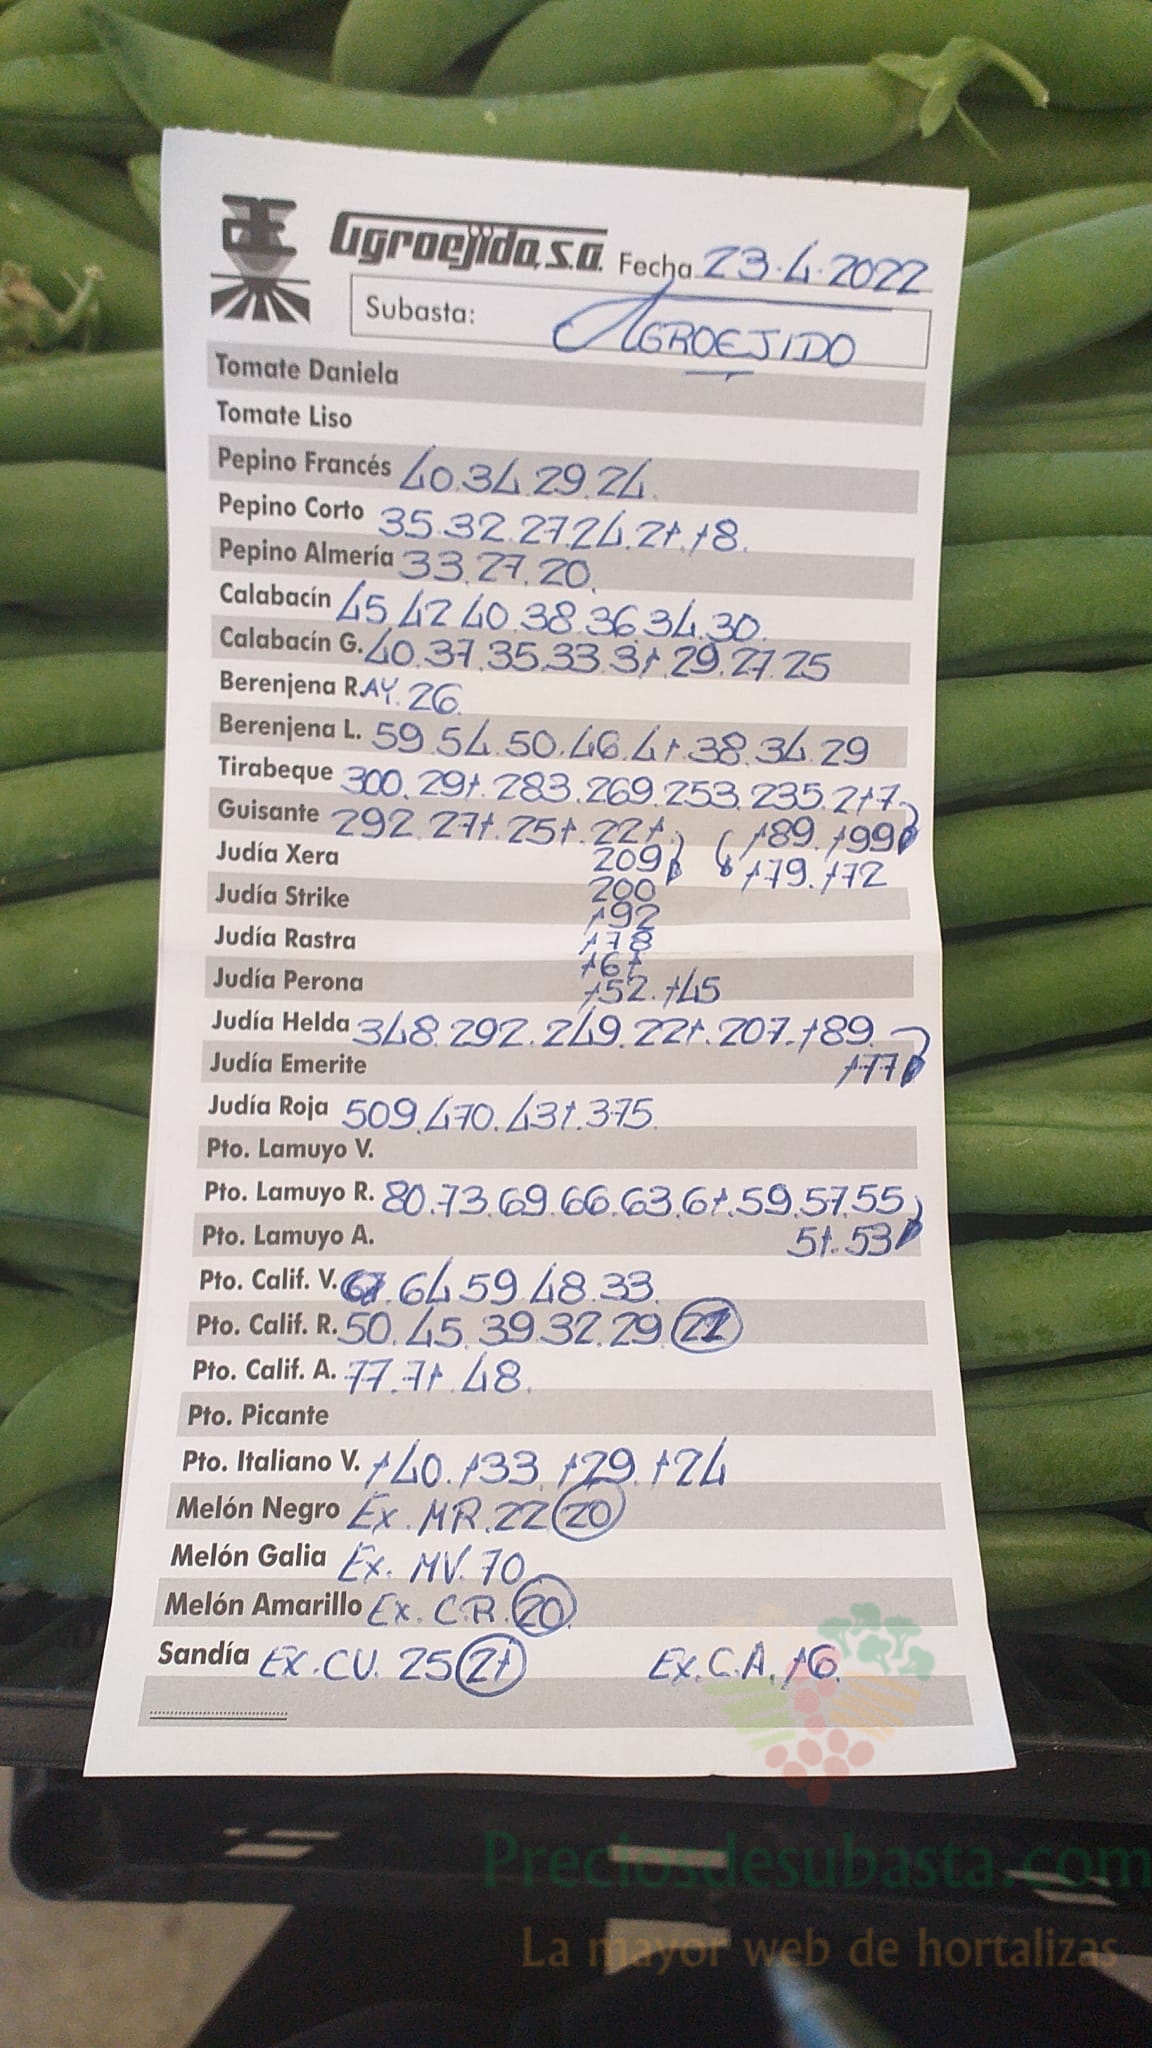 Agroejido, s.a. Fecha 23.4.2022
Subasta: AGROEJIDO
Tomate Daniela
Tomate Liso
Pepino Francés 40.34.29.24.
Pepino Corto 35.32.27.24.21.18.
Pepino Almería 33.27.20.
Calabacín 45.42.40.38.36.34.30.
Calabacín G. 40.37.35.33.31.29.27.25
Berenjena R.AY. 26.
Berenjena L. 59.54.50.46.41.38.34.29
Tirabeque 300.291.283.269.253.235.217
Guisante 292.271.251.221. 189.199
Judía Xera 209 179.172
Judía Strike 200
192
Judía Rastra 178
161
Judía Perona 152.145
Judía Helda 348.292.249.221.207.189
Judía Emerite 177
Judía Roja 509.470.431.375.
Pto. Lamuyo V.
Pto. Lamuyo R. 80.73.69.66.63.61.59.57.55
Pto. Lamuyo A. 51.53
Pto. Calif. V. 67.64.59.48.33.
Pto. Calif. R. 50.45.39.32.29
Pto. Calif. A. 77.71.48.
Pto. Picante
Pto. Italiano V. 140.133.129.124
Melón Negro Ex. MR. 22 20
Melón Galia Ex. MV. 70
Melón Amarillo Ex. C.R. 20
Sandía EX.CU. 25 21 Ex.C.A. 16.
Preciosdesubasta.com
La mayor web de hortalizas